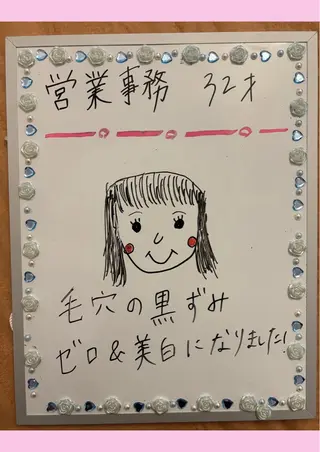 営業事務 32才
毛穴の黒ずみ
ゼロ&美白になりました!